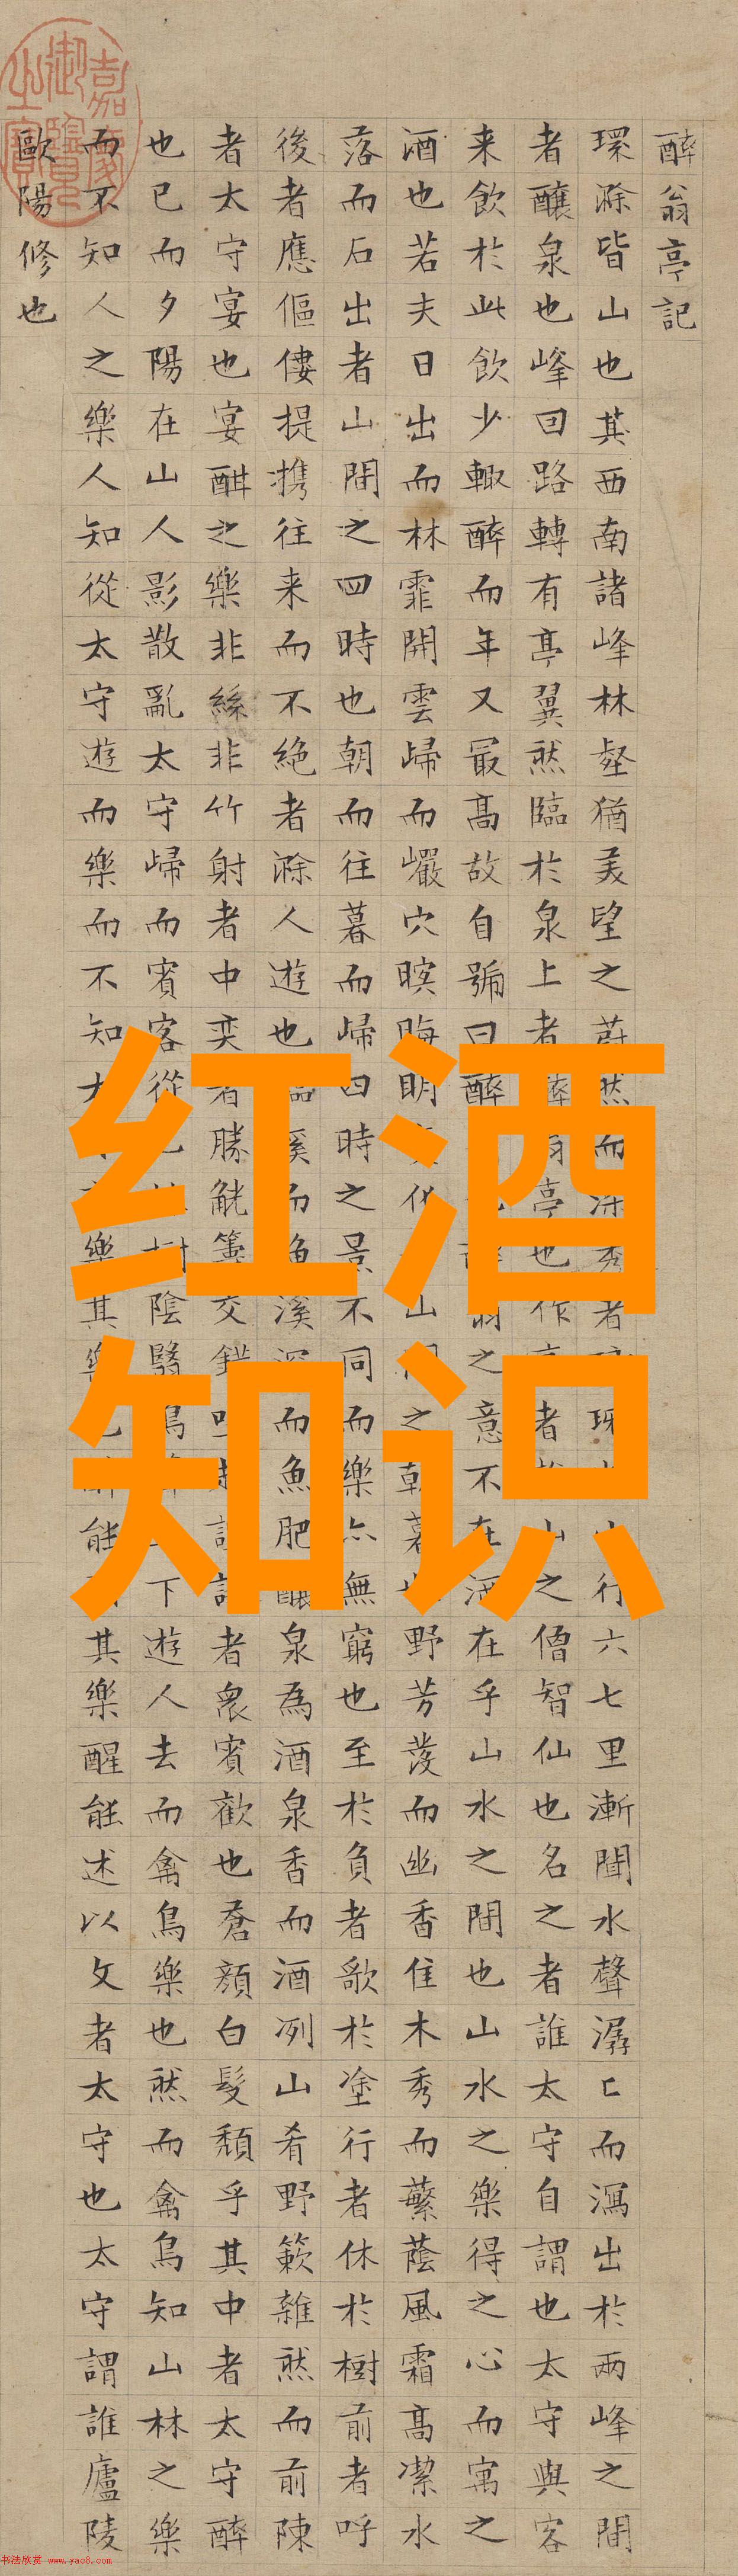 醉翁亭記
環滁皆山也其西南諸峰林壑猶美望之蔚然而深秀者琊行六七里漸聞水聲潺〻而瀉出於兩峰之間
者釀泉也峰回路轉有亭翼然臨於泉上者醉翁亭也作亭者山之僧智仙也名之者誰太守自謂也太守與客
来飲於此飲少輒醉而年又最高故自號曰醉翁之意不在酒在乎山水之間也山水之樂得之心而寓之
酒也若夫日出而林霏開雲歸而巖穴暝晦明化山間之朝暮也野芳發而幽香佳木秀而蘩蔭風霜高潔水
落而石出者山間之四時也朝而往暮而歸四時之景不同而樂亦無窮也至於負者歌於塗行者休於樹前者呼
後者應傴僂提攜往来而不絕者滁人遊也臨溪而漁溪深而魚肥釀泉為酒泉香而酒冽山肴野簌雜然而前陳
者太守宴也宴酣之樂非絲非竹射者中奕者勝觥籌交錯者衆賓歡也蒼顏白髮頹乎其中者太守醉
也已而夕陽在山人影散亂太守歸而賓客從樹陰翳鳴下遊人去而禽鳥樂也然而禽鳥知山林之樂
而不知人之樂人知從太守遊而樂而不知太樂其樂能其樂醒能述以文者太守也太守謂誰廬陵
歐陽修也
嘉慶御覽之寶
红酒
知识
书法欣赏 www.yac8.com